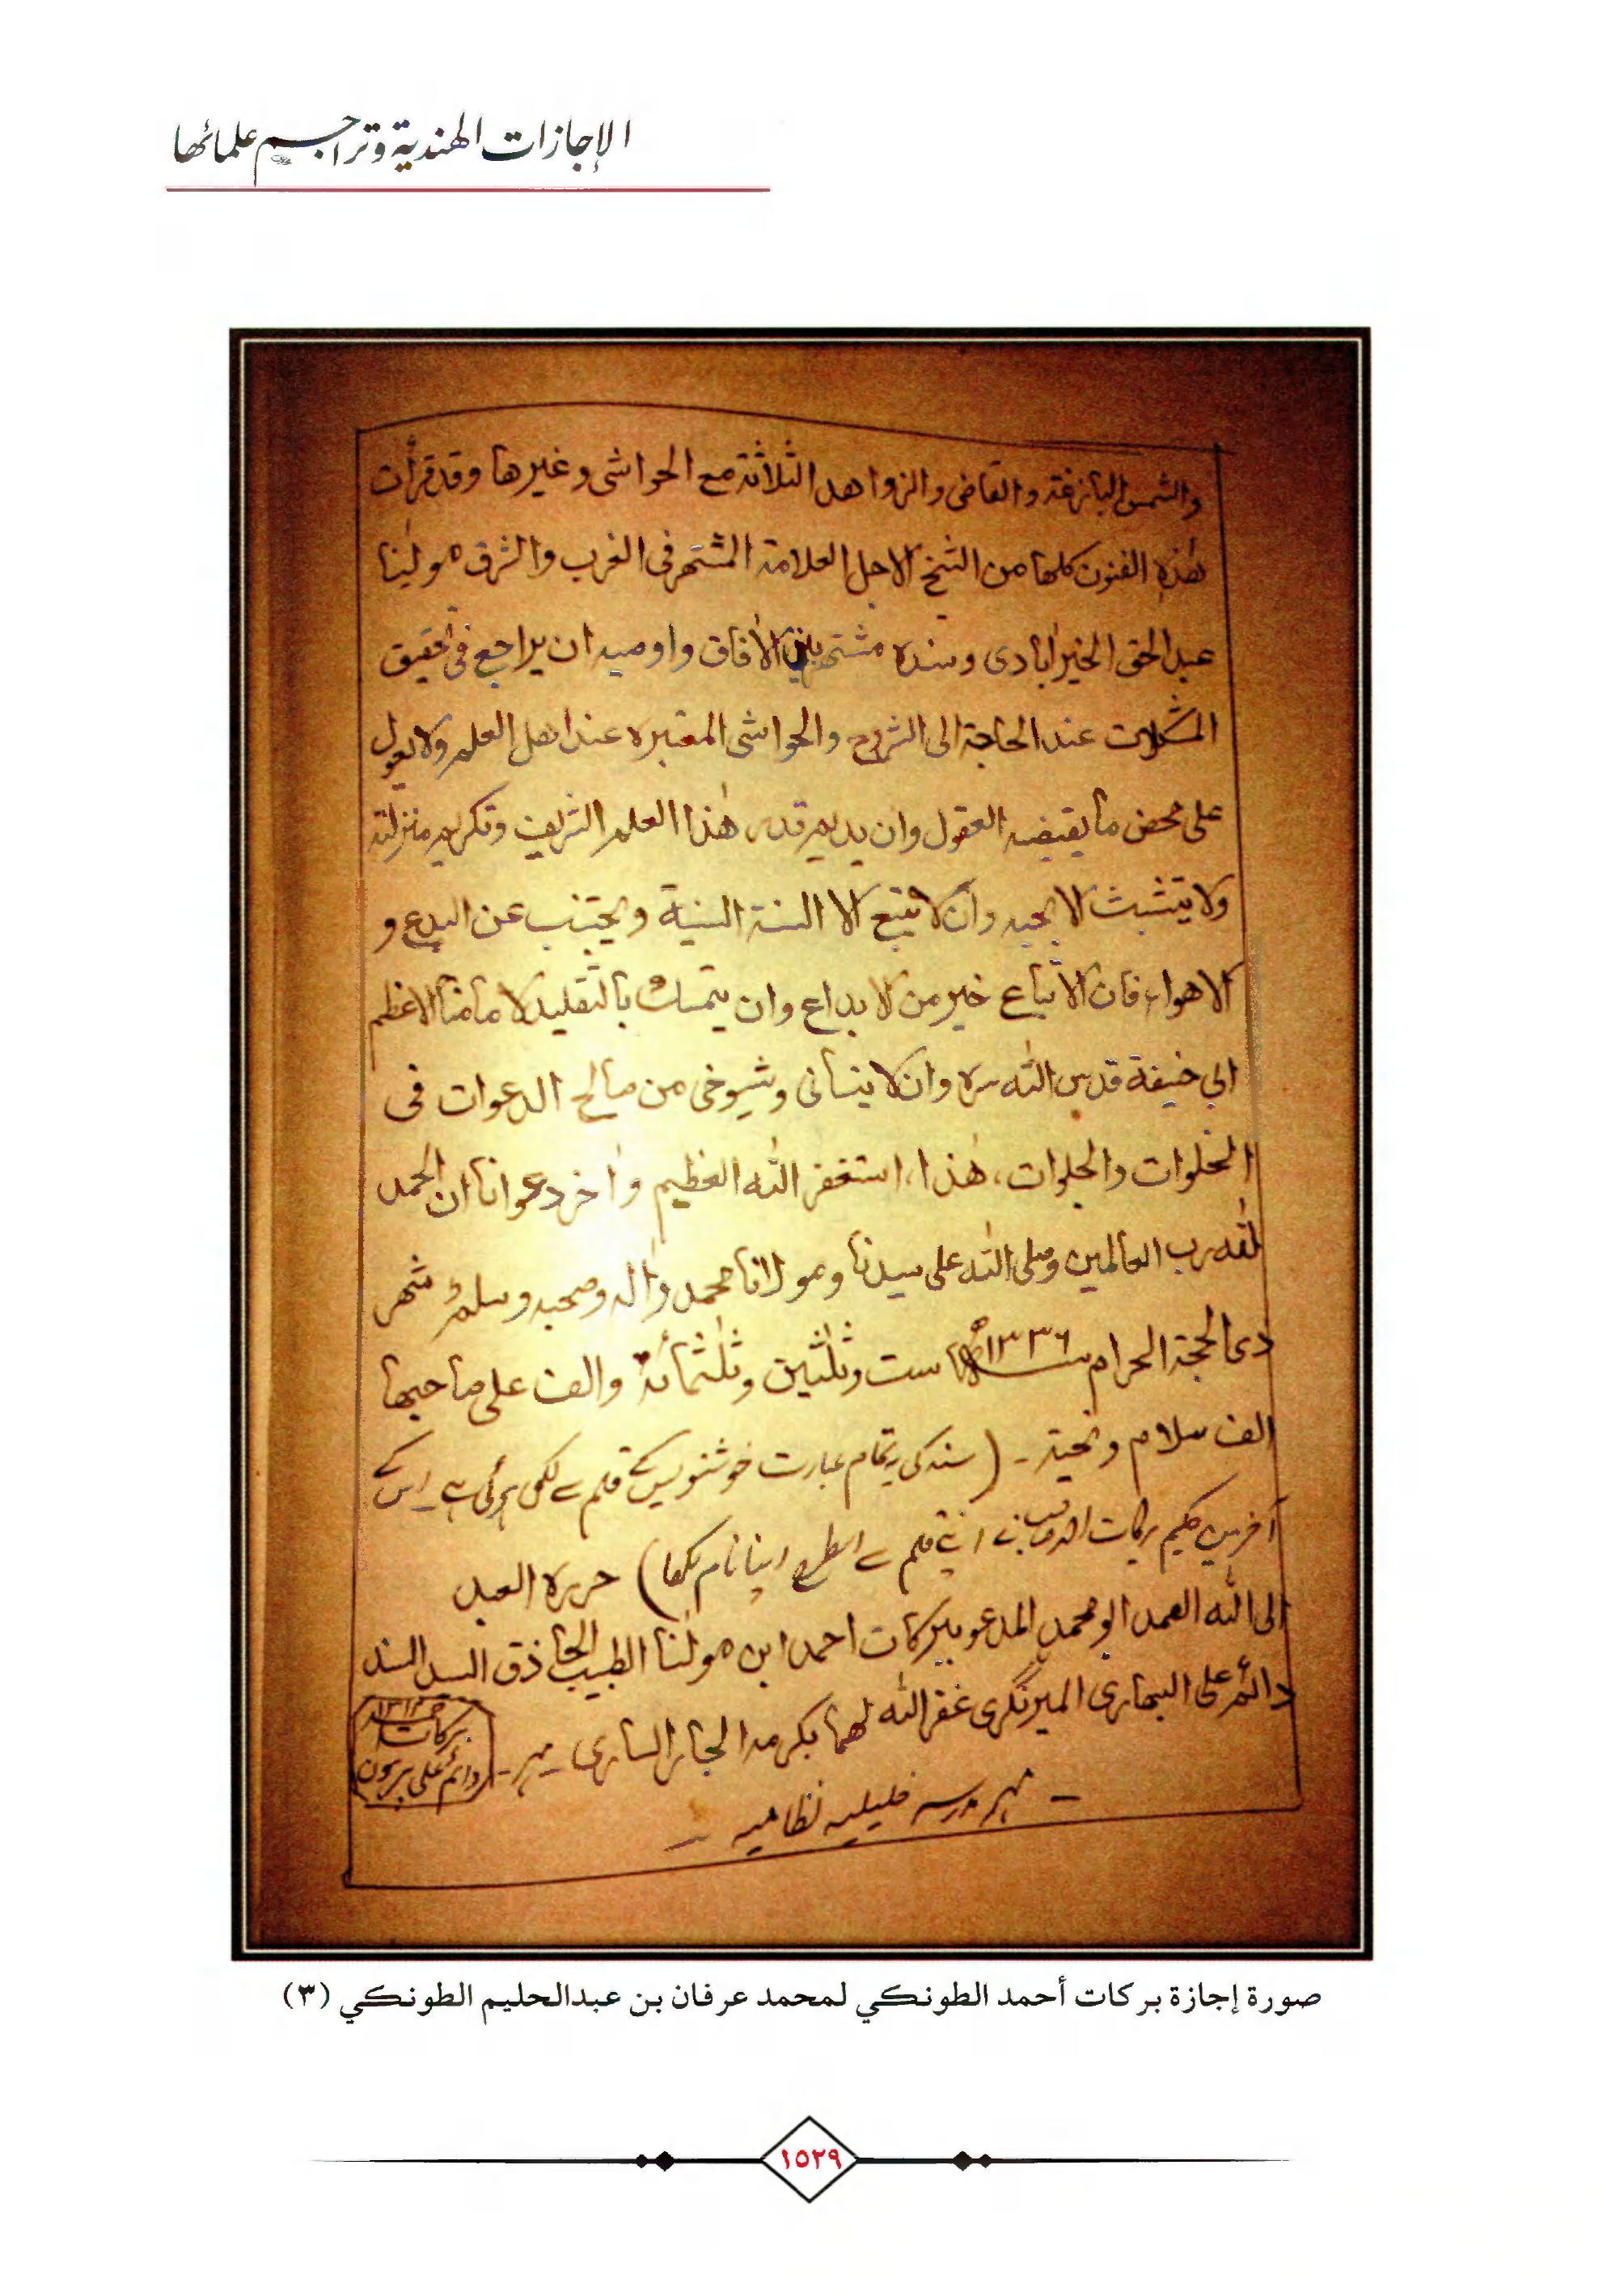 الإجازات الهندية وتراجم علمائها
والشمس البازغة والقاضى والزواهد الثلاثة مع الحواشى وغيرها وقد قرأت
هٰذه الفنون كلها من الشيخ الاجل العلامة المشتهر فى الغرب والشرق مولٰينا
عبد الحق الخيرابادى وسنده مشتهر بين الاٰفاق واوصيه ان يراجع فى تحقيق
المشكلات عند الحاجة الى الشروح والحواشى المعتبره عند اهل العلم ولا يعول
على محض ما يقتضيه العقول وان يديم قدر هٰذا العلم الشريف وتكريم منزلته
ولا يتشبث الا بحبه وان لا يتبع الا السنة السنية ويجتنب عن البدع و
الاهواء فان الاتباع خير من الابداع وان يتمسك بالتقليد لامامنا الاعظم
ابي حنيفة قدس الله سره وان لا ينسانى وشيوخى من صالح الدعوات فى
الخلوات والجلوات، هٰذا، استغفر الله العظيم واٰخر دعوانا ان الحمد
لله رب العالمين وصلى الله على سيدنا ومولانا محمد واٰله وصحبه وسلم شهر
ذى الحجة الحرام ١٣٣٦ھ ست وثلثين وثلثمائة والف على صاحبها
الف سلام وتحية ۔ (سند کی یہ تمام عبارت خوشنویس کے قلم سے لکھی ہوئی ہے ۔ اس کے
آخر میں حکیم برکات احمد صاحب نے اپنے قلم سے اسطرح اپنا نام لکھا) حرره العبد
الى الله الصمد ابو محمد المدعو ببركات احمد ابن مولٰنا الطبيب الحاذق السيد السند
دائم على البهارى الميرنگرى غفر الله لهما بكرمه الجار السارى ۔ مہر ۔
١٣١٣
برکات
دائم علی بریون
۔ مہر مدرسہ خلیلیہ نظامیہ ۔
صورة إجازة بركات أحمد الطونكي لمحمد عرفان بن عبدالحليم الطونكي (٣)
١٥٢٩